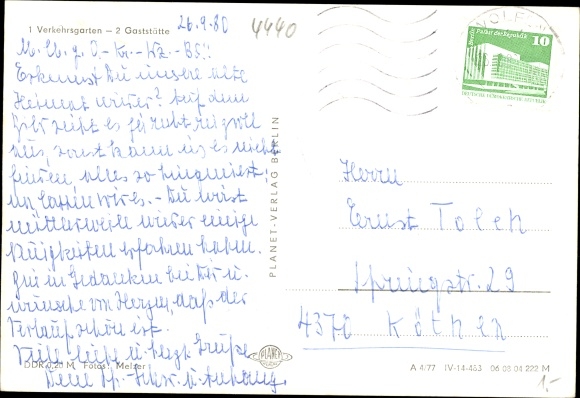 1 Verkehrsgarten – 2 Gaststätte
26.9.80
4440
M. Lb. z. O-Kr.-Kz.-BS!!
Erkennst Du unsere alte
Heimat wieder? Auf dem
Bild sieht es ja
aus, sonst kann
finden, alles so
lassen wir es. - Du wirst
mittlerweile wieder einige
Neuigkeiten erfahren haben.
Bin in Gedanken bei Dir u.
wünsche von Herzen, dass der
Verlauf schön ist.
Viele liebe u. herzl. Grüße
Deine
DDR 0,20 M Fotos: Melzer
PLANET-VERLAG BERLIN
PLANET
Berlin Palast der Republik 10
DEUTSCHE DEMOKRATISCHE REPUBLIK
WOLFEN
Herrn
Ernst
Springstr. 29
4370 Köthen
A 4/77 IV-14-483 06 03 04 222 M
1.-